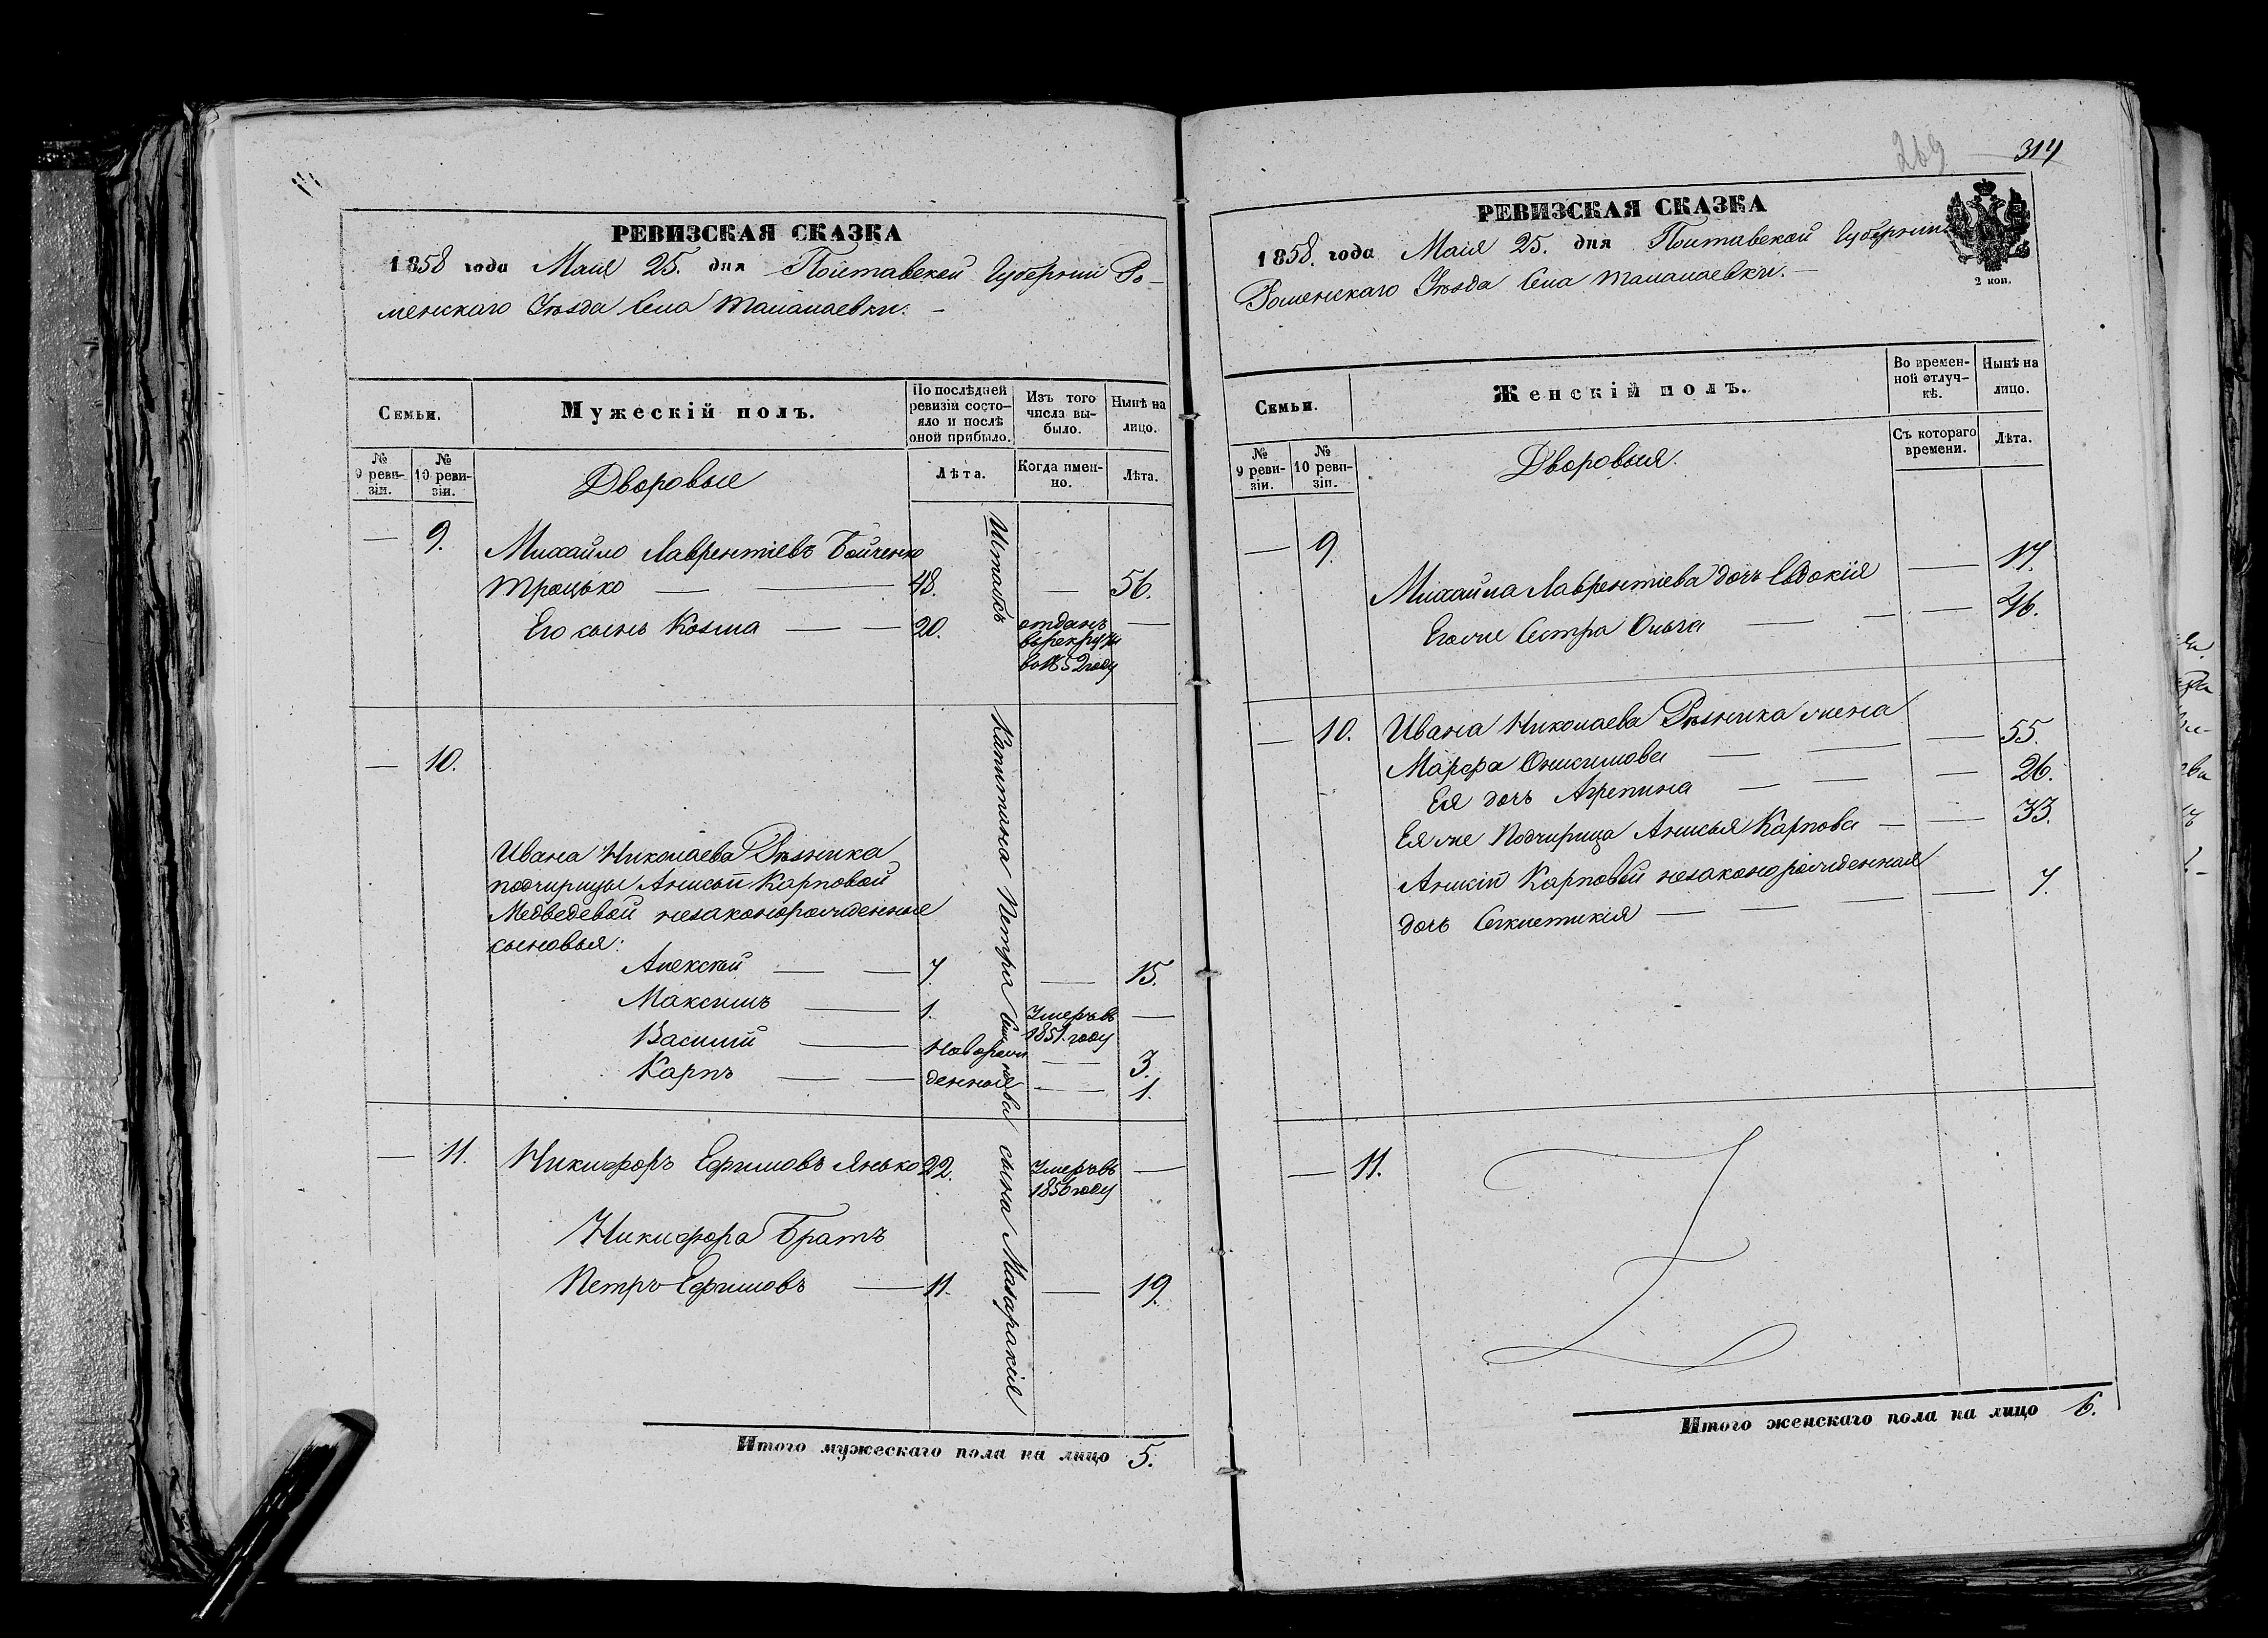 РЕВИЗСКАЯ СКАЗКА
1858 года Маія 25. дня Полтавской Губерніи Ро-
менскаго Уѣзда Села Талалаевки. -
Семьи.
Мужескій полъ.
По послѣдней ревизіи состо-
яло и послѣ
оной прибыло.
Изъ того
числа вы-
было.
Нынѣ на
лицо.
№
9 реви-
зіи.
№
10 реви-
зіи.
Дворовые
Лѣта.
Когда имен-
но.
Лѣта.
— 9. Михайло Лаврентіевъ Бойченко
Троцько — — 48. — 56.
Его сынъ Козма — — 20. отданъ —
въ рекруты
во 1852 году
— 10.
Ивана Николаева Рѣзника
подчирицы Анисьи Карповой
Медведевой незаконорожденные
сыновья:
Алексѣй — — 7. — 15.
Максимъ — 1. Умеръ въ —
1851. году
Василій — Новорож — 3.
Карпъ — — денные — 1.
— 11. Никифоръ Ефимовъ Янько 22. Умеръ въ —
1856 году
Никифора Братъ
Петръ Ефимовъ — 11. — 19.
Капитана Петра сына Мазаракія
Итого мужескаго пола на лицо 5.
269 314
РЕВИЗСКАЯ СКАЗКА
1858. года Маія 25. дня Полтавской Губерніи
Роменскаго Уѣзда Села Талалаевки. —
2 коп.
Семьи.
Женскій полъ.
Во времен-
ной отлуч-
кѣ.
Нынѣ на
лицо.
№
9 реви-
зіи.
№
10 реви-
зіи.
Дворовыя.
Съ котораго
времени.
Лѣта.
— 9.
Михайла Лаврентіева дочь Евдокія — 17.
Егоже Сестра Ольга — — — 46.
— 10. Ивана Николаева Рѣзника жена
Марфа Онисимова — — — 55.
Ея дочь Агрепина — — — 26.
Ея же Подчирица Анисья Карпова — — 33.
Анисіи Карповой незаконорожденная
дочь — — — — 7.
— 11.
Итого женскаго пола на лицо 6.